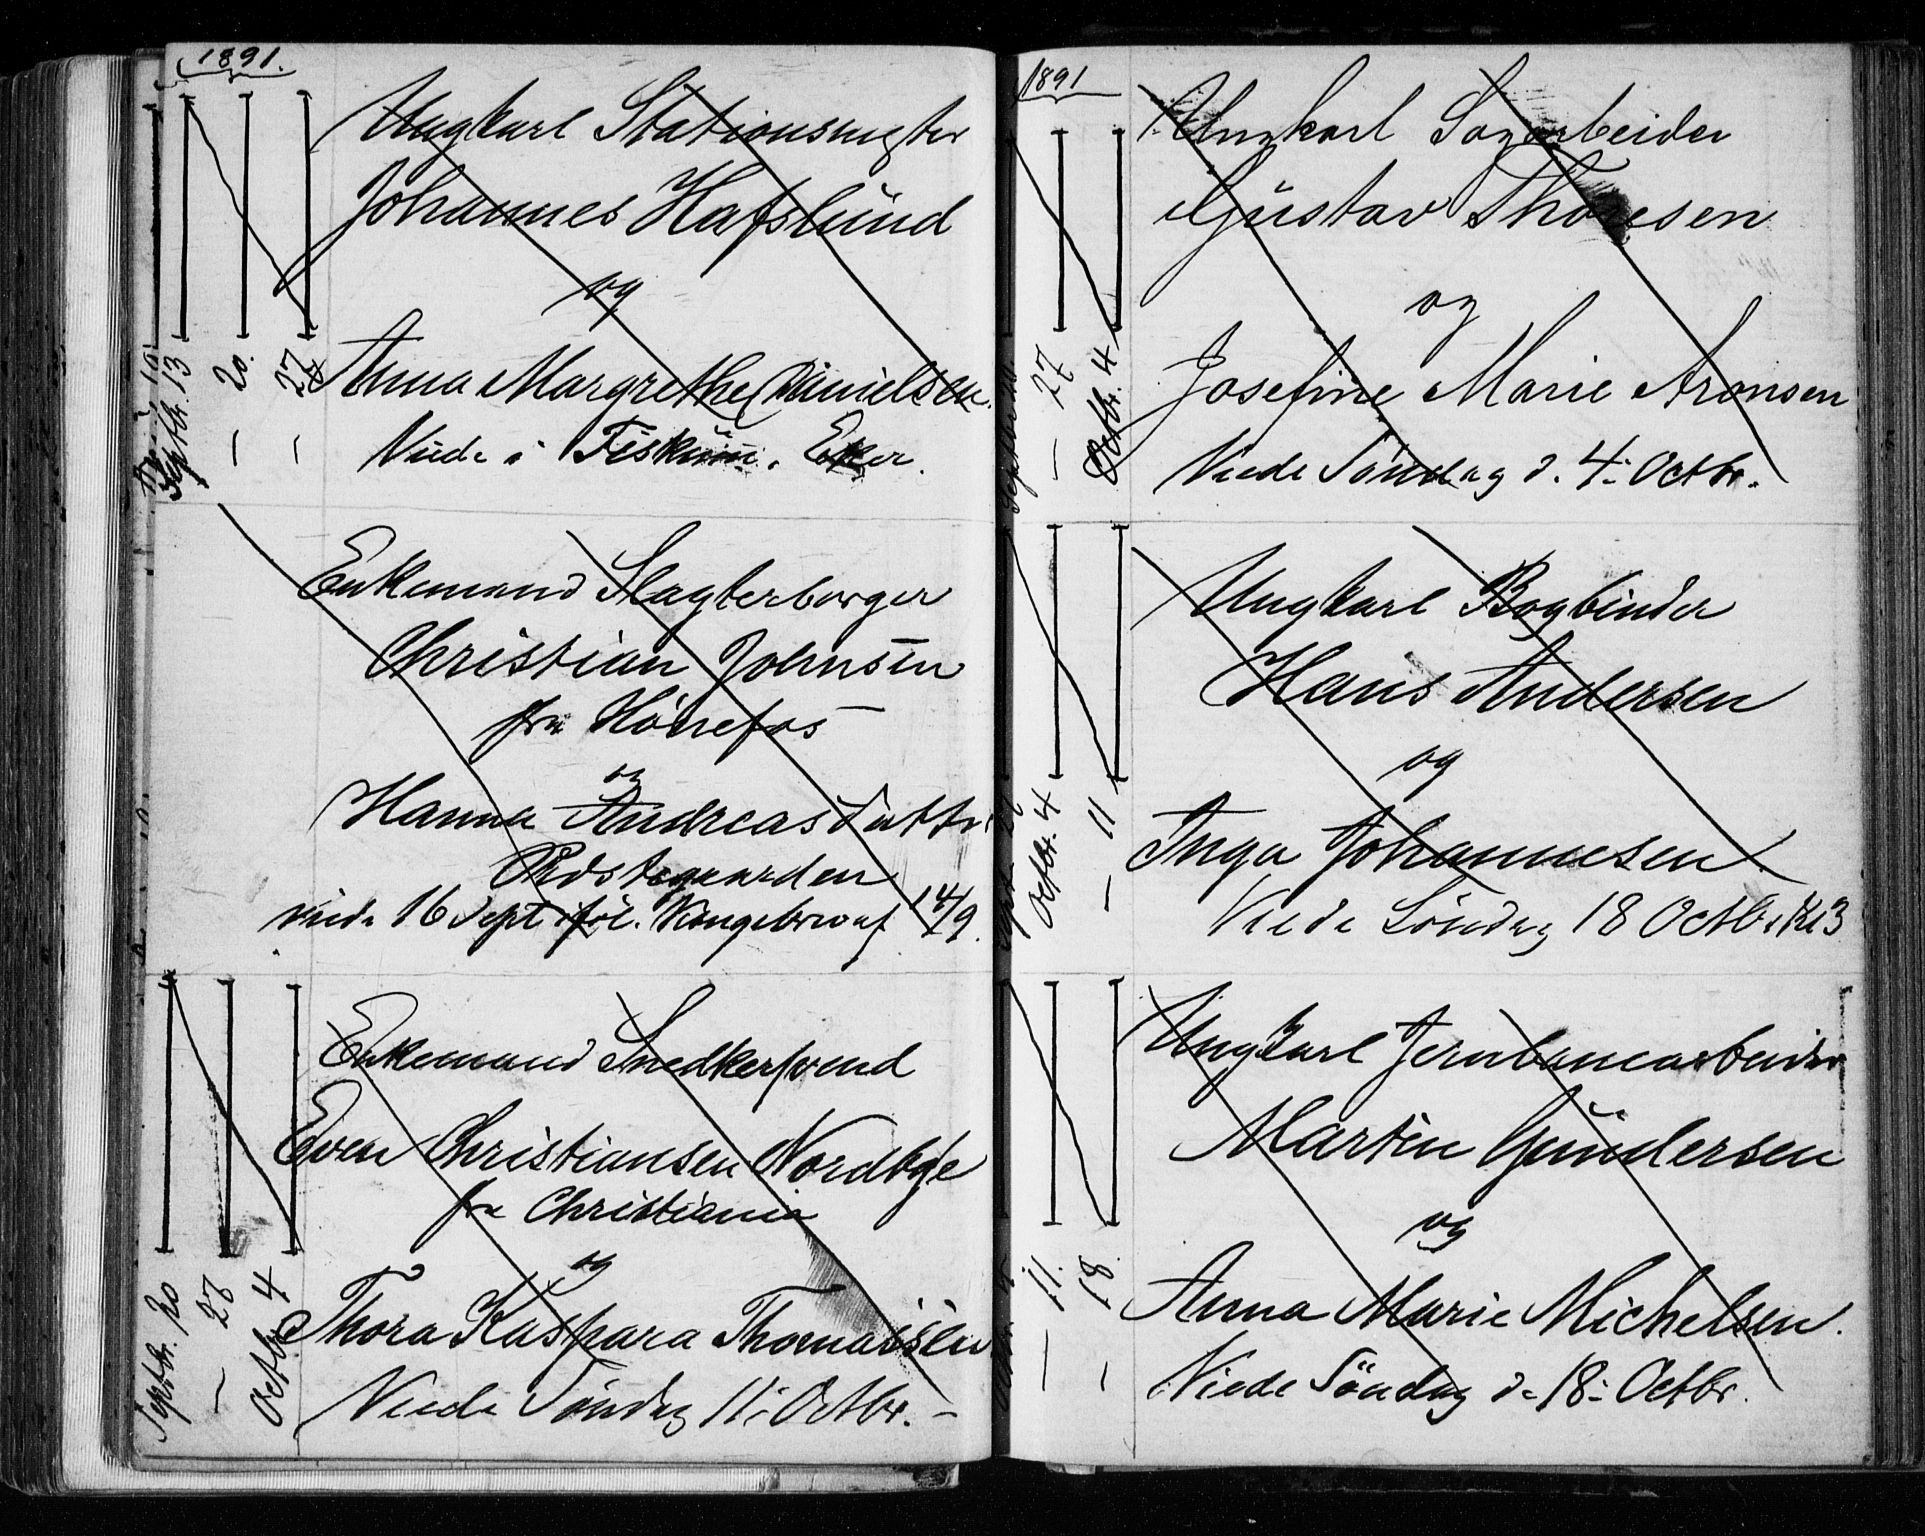 1891.
Ungkarl Stationsmester
Johannes Hafslund
og
Anna Margrethe Danielsen.
Viede i Fiskum, Eker.
Septbr. 13
— 20.
— 27
Enkemand Slagterborger
Christian Johnsen
fra Hönefos
og
Hanna Andreasdatter
viede 16 Sept iföl. Kongebrev af 14/9.
Enkemand Snedkersvend
Even Christiansen Nordbye
fra Christiania
og
Thora Kaspara Thomassen
Viede Söndag 11. Octbr. —
Septbr. 20
— 27
Octbr. 4
1891
Ungkarl Sagarbeider
Gustav Thoresen
og
Josefine Marie Aronsen
Viede Söndag d. 4. Octbr.
— 27
Octbr. 4
Ungkarl Bogbinder
Hans Andersen
og
Inga Johannesen.
Viede Söndag 18 Octbr. Kl 3
Octbr. 4
— 11
Ungkarl Jernbanearbeider
Martin Gundersen
og
Anna Marie Michelsen.
Viede Söndag d. 18. Octbr.
— 11.
— 18.